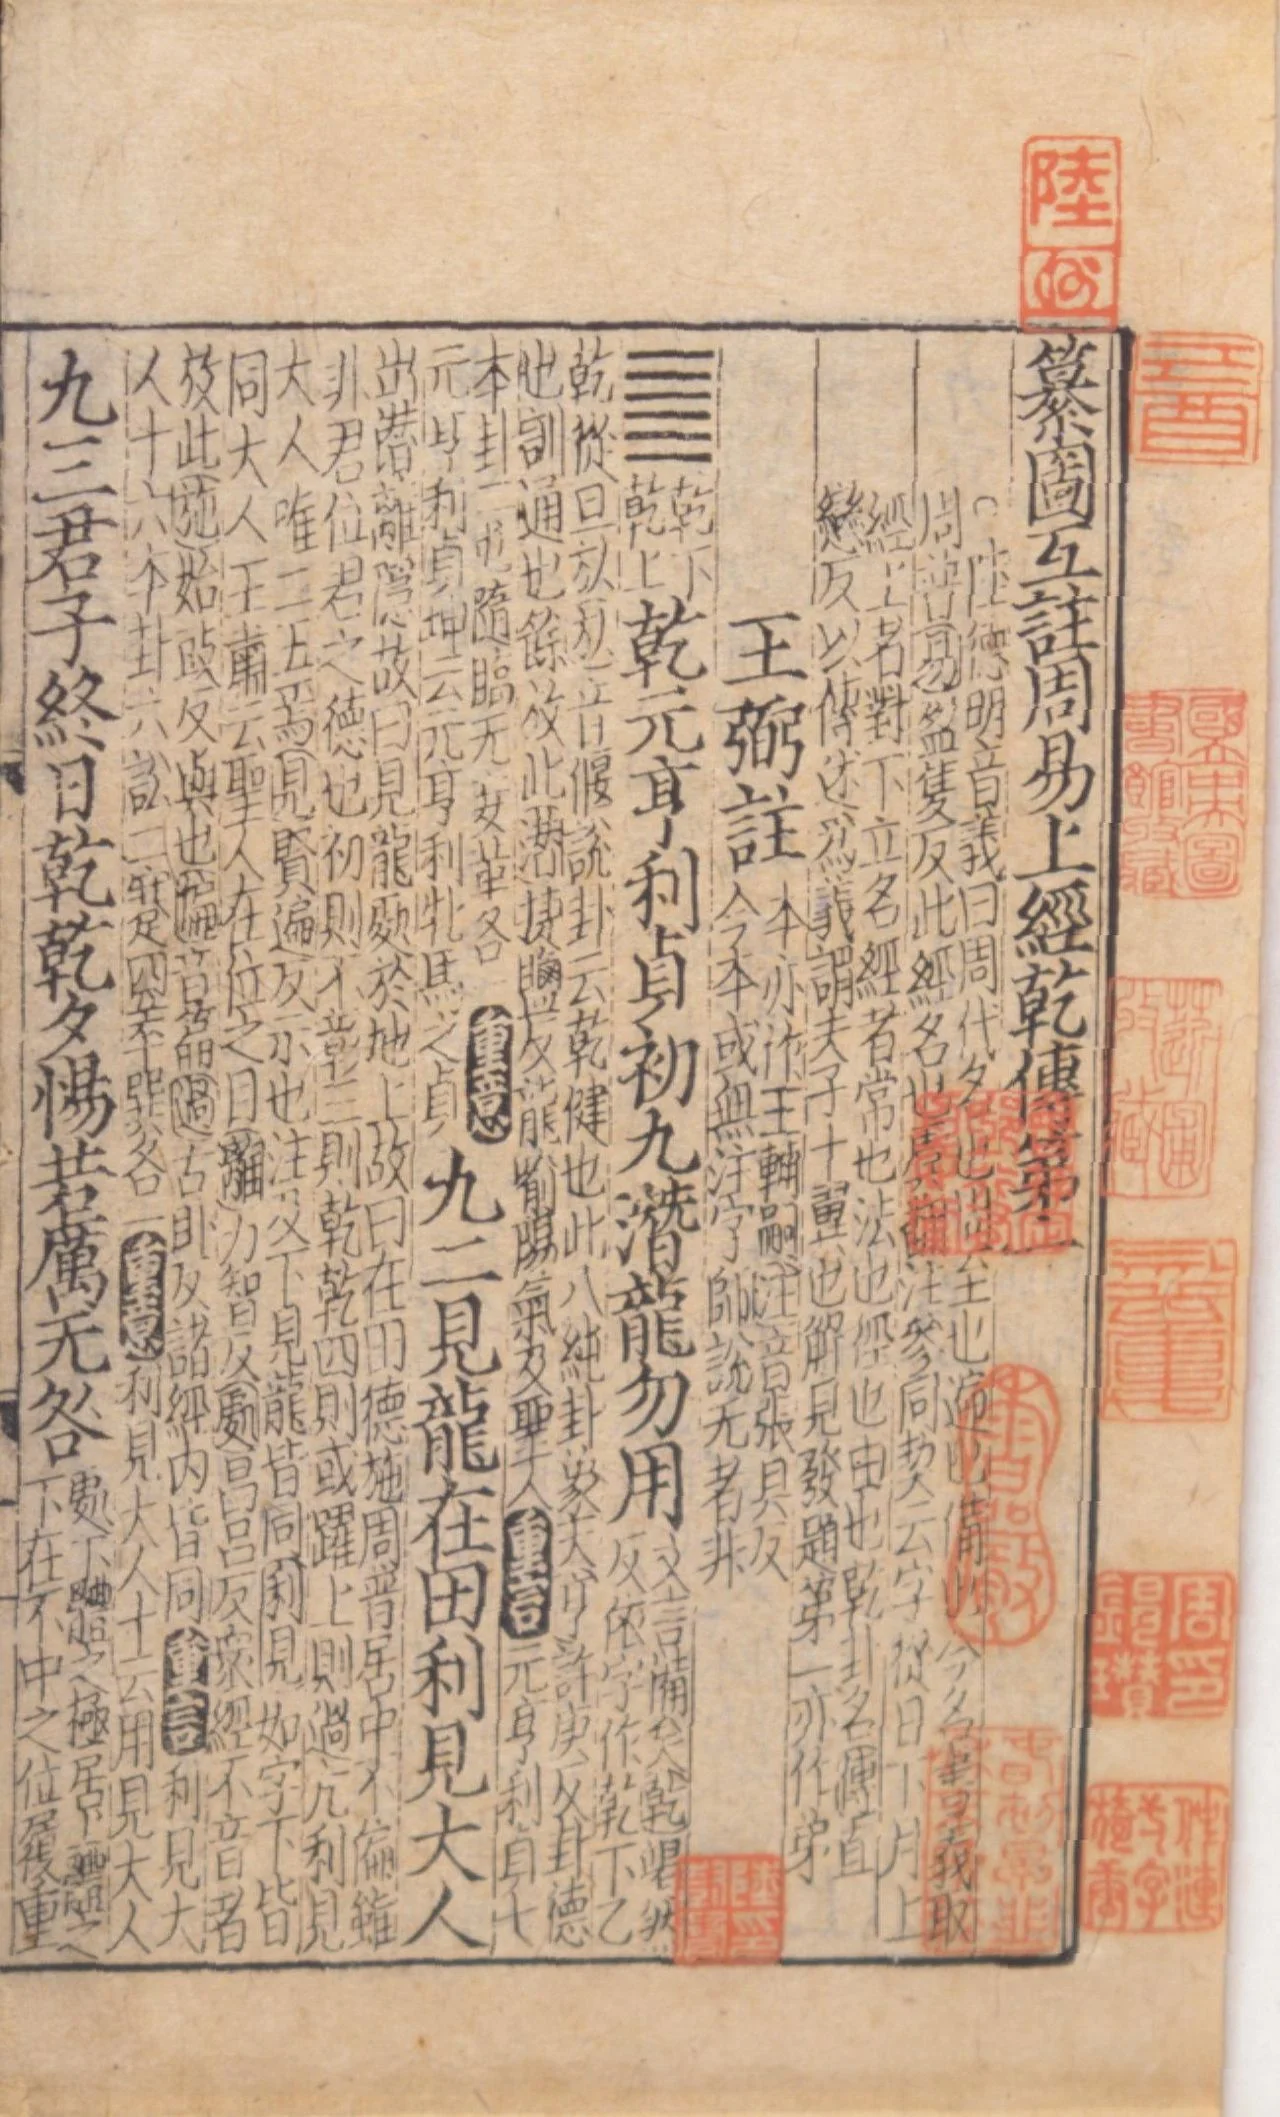 纂圖互註周易上經乾傳第一
陸德明音義曰周代名也周至也遍也備也今名書義取
周普易盈隻反此經名也虞翻注參同契云字從日下月上
經上者對下立名經者常也法也徑也由也乾卦名傳直
戀反以傳述爲義謂夫子十翼也解見發題第一亦作弟
王弼註
本亦作王輔嗣注音張具反
今本或無注字師說无者非
乾下
乾上
乾元亨利貞初九潛龍勿用
文言備矣乾竭然
反依字作乾下乙
乾從旦㫃㫃音偃說卦云乾健也此八純卦象天亨許庚反卦德
也訓通也餘放此
龍喻陽氣及聖人
重言
元亨利貞七
本卦二屯隨臨无妄革各一
重意
元亨利貞坤云元亨利牝馬之貞
九二見龍在田利見大人
出潛離隱故曰見龍處於地上故曰在田德施周普居中不偏雖
非君位君之德也初則不彰三則乾乾四則或躍上則過亢利見
大人唯二五焉見賢遍反示也注及下見龍皆同利見如字下皆
同大人王肅云聖人在位之目離力智反處昌呂反衆經不音者
放此施始豉反與也
諸經內皆同
重言
利見大
人十六本卦六訟二蹇四萃巽各一
重意
利見大人十云用見大人
九三君子終日乾乾夕惕若厲无咎
處下體之極居上體之
下在不中之位履重